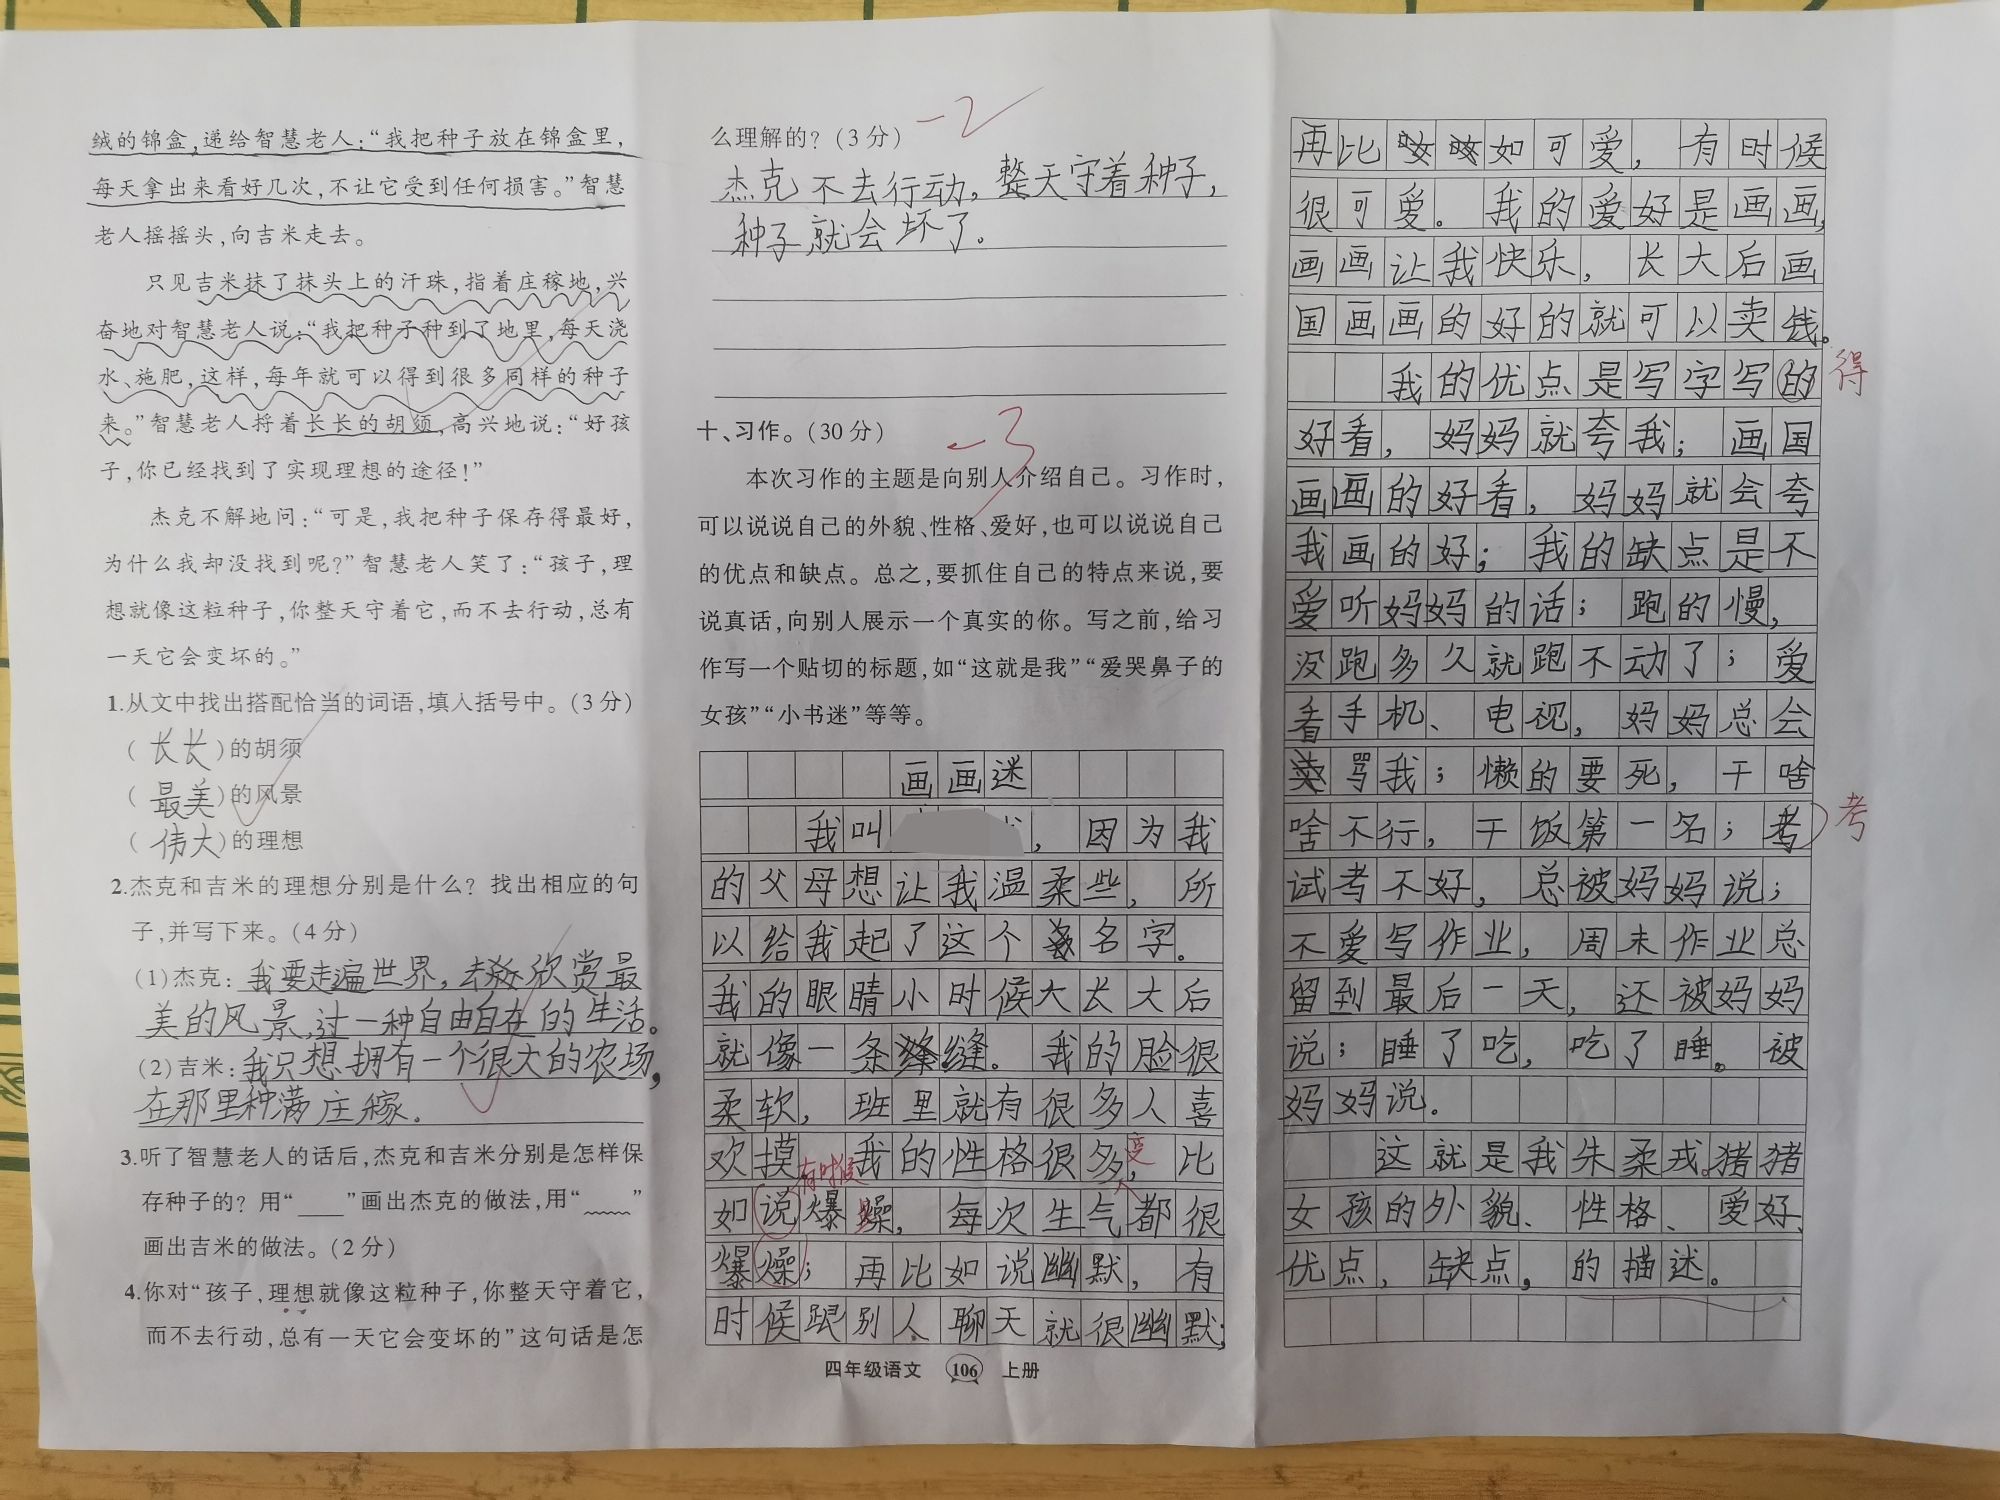 绒的锦盒,递给智慧老人:“我把种子放在锦盒里,
每天拿出来看好几次,不让它受到任何损害。”智慧
老人摇摇头,向吉米走去。
只见吉米抹了抹头上的汗珠,指着庄稼地,兴
奋地对智慧老人说:“我把种子种到了地里,每天浇
水、施肥,这样,每年就可以得到很多同样的种子
来。”智慧老人捋着长长的胡须,高兴地说:“好孩
子,你已经找到了实现理想的途径!”
杰克不解地问:“可是,我把种子保存得最好,
为什么我却没找到呢?”智慧老人笑了:“孩子,理
想就像这粒种子,你整天守着它,而不去行动,总有
一天它会变坏的。”
1.从文中找出搭配恰当的词语,填入括号中。(3分)
(长长)的胡须
(最美)的风景
(伟大)的理想
2.杰克和吉米的理想分别是什么?找出相应的句
子,并写下来。(4分)
(1)杰克:我要走遍世界,去欣赏最
美的风景,过一种自由自在的生活。
(2)吉米:我只想拥有一个很大的农场,
在那里种满庄稼.
3.听了智慧老人的话后,杰克和吉米分别是怎样保
存种子的?用“____”画出杰克的做法,用“﹏﹏”
画出吉米的做法。(2分)
4.你对“孩子,理想就像这粒种子,你整天守着它,
而不去行动,总有一天它会变坏的”这句话是怎
么理解的?(3分) -2
杰克不去行动,整天守着种子,
种子就会坏了。
十、习作。(30分) -3
本次习作的主题是向别人介绍自己。习作时,
可以说说自己的外貌、性格、爱好,也可以说说自己
的优点和缺点。总之,要抓住自己的特点来说,要
说真话,向别人展示一个真实的你。写之前,给习
作写一个贴切的标题,如“这就是我”“爱哭鼻子的
女孩”“小书迷”等等。
画画迷
我叫,因为我
的父母想让我温柔些,所
以给我起了这个名字。
我的眼睛小时候大长大后
就像一条缝。我的脸很
柔软,班里就有很多人喜
欢摸我的性格很多变,比
有时候
如说爆躁,每次生气都很
爆燥;再比如说幽默,有
时候跟别人聊天就很幽默;
四年级语文 106 上册
再比如可爱,有时候
很可爱。我的爱好是画画,
画画让我快乐,长大后画
国画画的好的就可以卖钱。
我的优点是写字写的 得
好看,妈妈就夸我;画国
画画的好看,妈妈就会夸
我画的好;我的缺点是不
爱听妈妈的话;跑的慢,
没跑多久就跑不动了;爱
看手机、电视,妈妈总会
骂我;懒的要死,干啥
啥不行,干饭第一名;考 考
试考不好,总被妈妈说;
不爱写作业,周末作业总
留到最后一天,还被妈妈
说;睡了吃,吃了睡。被
妈妈说.
这就是我朱柔戎。猪猪
女孩的外貌、性格、爱好、
优点,缺点,的描述。